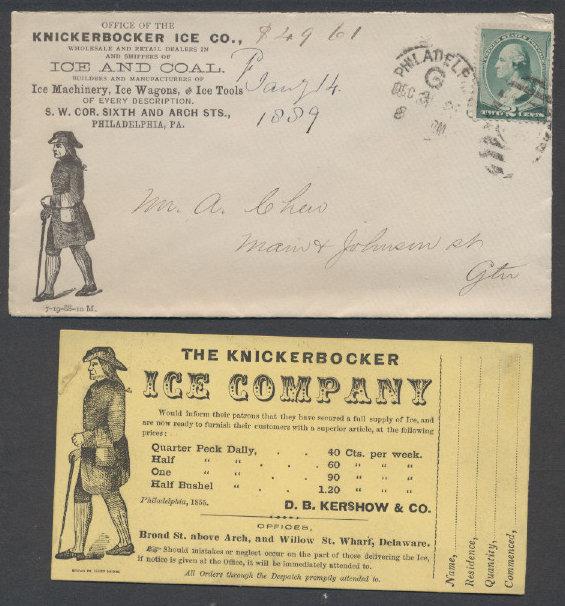 OFFICE OF THE
KNICKERBOCKER ICE CO.,
WHOLESALE AND RETAIL DEALERS IN
AND SHIPPERS OF
ICE AND COAL.
BUILDERS AND MANUFACTURERS OF
Ice Machinery, Ice Wagons, and Ice Tools
OF EVERY DESCRIPTION.
S. W. COR. SIXTH AND ARCH STS.,
PHILADELPHIA, PA.
$49 61
P
Jany 14
1889
PHILADEL
DEC 31
8 PM
TWO 2 CENTS
Mr. A. Chew
Main & Johnson st
Gtn
7-19-88-10 M.
THE KNICKERBOCKER
ICE COMPANY
Would inform their patrons that they have secured a full supply of Ice, and
are now ready to furnish their customers with a superior article, at the following
prices:
Quarter Peck Daily, . . 40 Cts. per week.
Half " " . . . 60 " " "
One " " . . . 90 " " "
Half Bushel " . . . 1.20 " " "
Philadelphia, 1855. D. B. KERSHOW & CO.
OFFICES,
Broad St. above Arch, and Willow St. Wharf, Delaware.
Should mistakes or neglect occur on the part of those delivering the Ice,
if notice is given at the Office, it will be immediately attended to.
All Orders through the Despatch promptly attended to.
Name,
Residence,
Quantity,
Commenced,